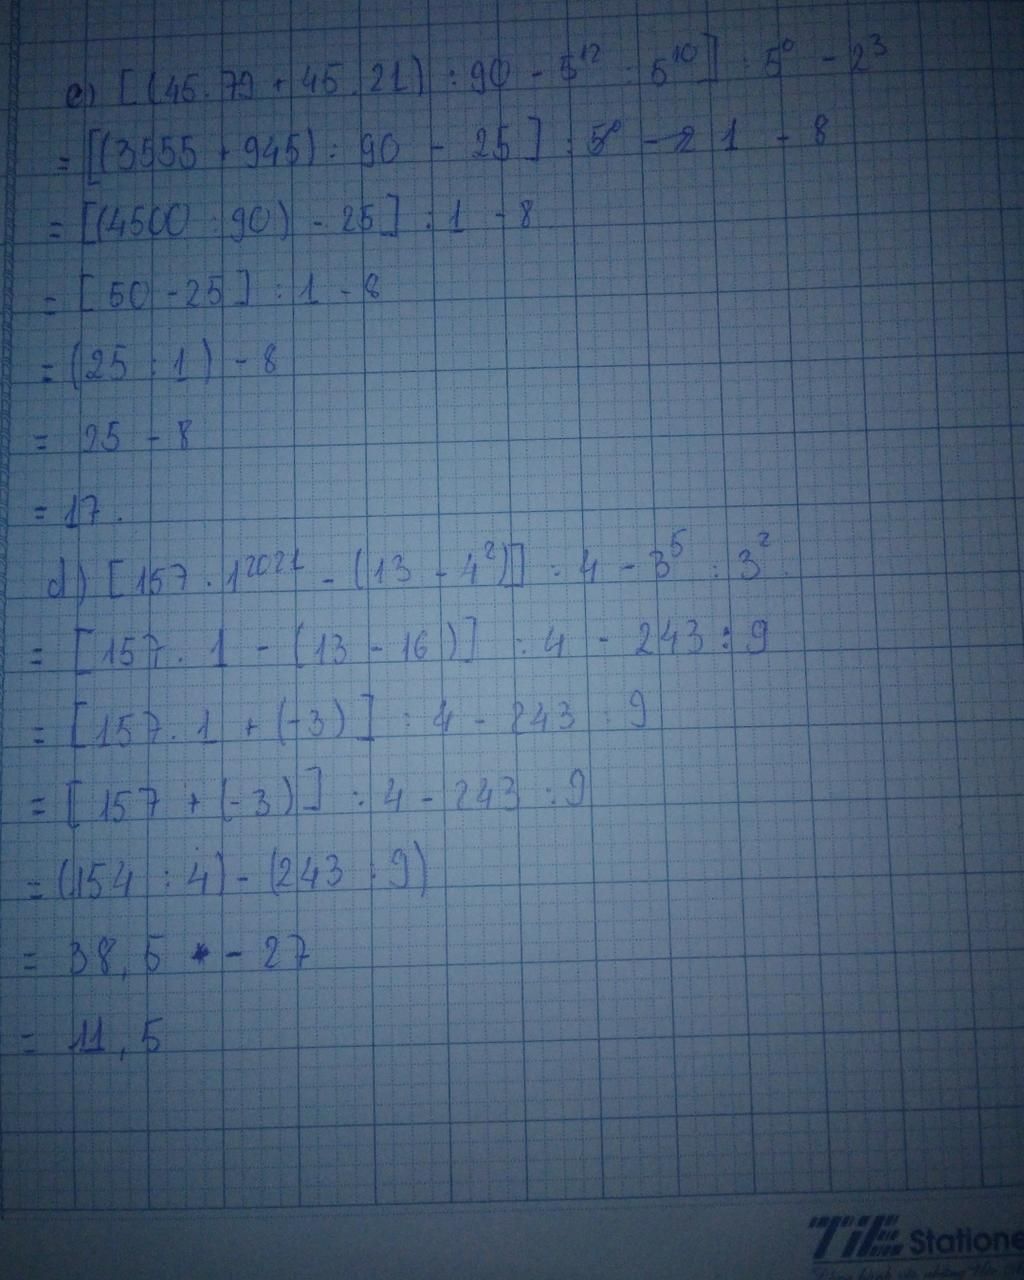 c) [(45.79 + 45.21) : 90 - 5¹² : 5¹⁰] : 5⁰ - 2³
= [(3555 + 945) : 90 - 25] : 5⁰ - 2 1 - 8
= [(4500 : 90) - 25] : 1 - 8
= [50 - 25] : 1 - 8
= (25 : 1) - 8
= 25 - 8
= 17.
d) [157 . 1²⁰²¹ - (13 - 4²)] : 4 - 3⁵ : 3²
= [157 . 1 - (13 - 16)] : 4 - 243 : 9
= [157 . 1 + (-3)] : 4 - 243 : 9
= [157 + (-3)] : 4 - 243 : 9
= (154 : 4) - (243 : 9)
= 38,5 - 27
= 11,5
TiE Statione